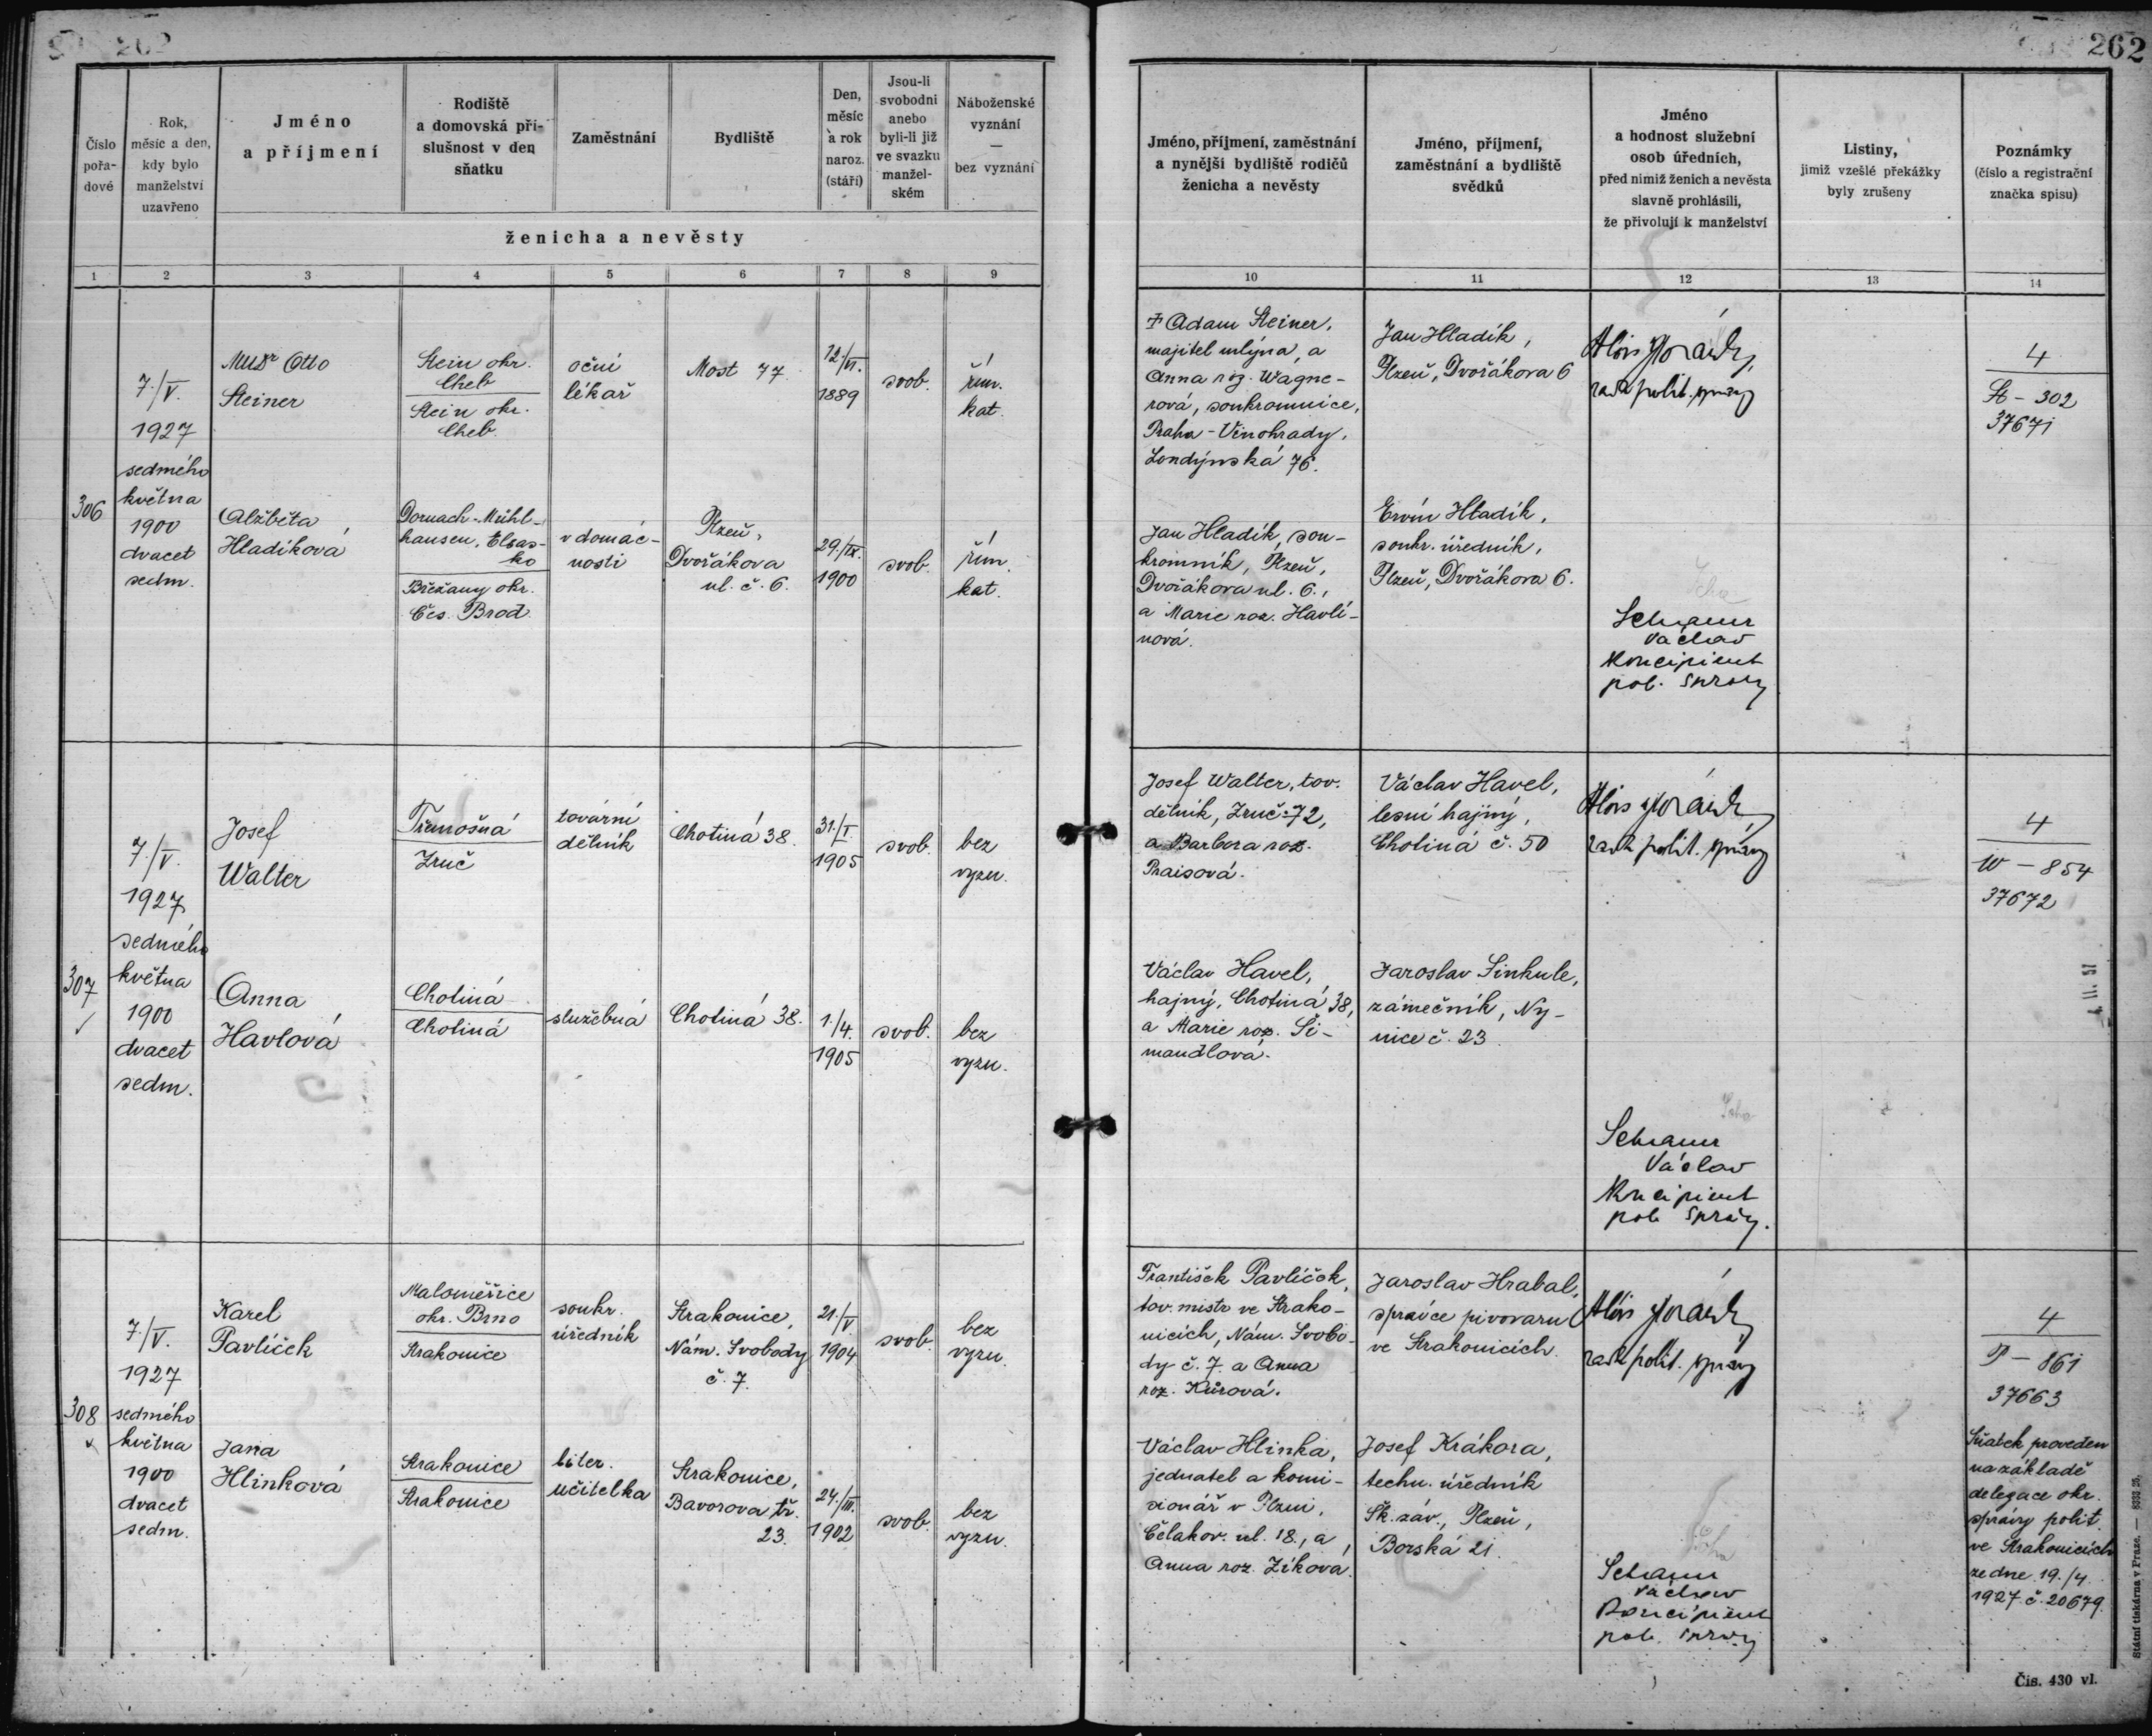 262
262
Číslo
pořa-
dové
Rok,
měsíc a den,
kdy bylo
manželství
uzavřeno
Jméno
a příjmení
Rodiště
a domovská pří-
slušnost v den
sňatku
Zaměstnání
Bydliště
Den,
měsíc
a rok
naroz.
(stáří)
Jsou-li
svobodni
anebo
byli-li již
ve svazku
manžel-
ském
Náboženské
vyznání
—
bez vyznání
ženicha a nevěsty
Jméno, příjmení, zaměstnání
a nynější bydliště rodičů
ženicha a nevěsty
Jméno, příjmení,
zaměstnání a bydliště
svědků
Jméno
a hodnost služební
osob úředních,
před nimiž ženich a nevěsta
slavně prohlásili,
že přivolují k manželství
Listiny,
jimiž vzešlé překážky
byly zrušeny
Poznámky
(číslo a registrační
značka spisu)
1
2
3
4
5
6
7
8
9
10
11
12
13
14
306
7./V.
1927
sedmého
května
1900
dvacet
sedm.
MUDr Otto
Steiner
Stein okr.
Cheb
Stein okr.
Cheb.
oční
lékař
Most 77.
12./VI.
1889
svob.
řím.
kat.
† Adam Steiner,
majitel mlýna, a
Anna roz. Wagne-
rová, soukromnice,
Praha-Vinohrady,
Londýnská 76.
Jan Hladík,
Plzeň, Dvořákova 6
Alois
rada polit. správy
4
St - 302
37671
Alžběta
Hladíková
Dornach-Mühl-
hausen, Elsas-
ko
Břežany okr.
Čes. Brod.
v domác-
nosti
Plzeň,
Dvořákova
ul. č. 6.
29./IX.
1900
svob.
řím.
kat.
Jan Hladík, sou-
kromník, Plzeň,
Dvořákova ul. 6.,
a Marie roz. Havlí-
nová.
Ervín Hladík,
soukr. úředník,
Plzeň, Dvořákova 6.
Václav
koncipient
pol. správy
307
7./V.
1927
sedmého
května
1900
dvacet
sedm.
Josef
Walter
Třemošná
Zruč
tovární
dělník
Chotiná 38.
31./I.
1905
svob.
bez
vyzn.
Josef Walter, tov.
dělník, Zruč 72,
a Barbora roz.
Praisová.
Václav Havel,
lesní hajný,
Chotiná č. 50
Alois
rada polit. správy
4
W - 854
37672
Anna
Havlová
Chotiná
Chotiná
služebná
Chotiná 38.
1./4.
1905
svob.
bez
vyzn.
Václav Havel,
hajný, Chotiná 38,
a Marie roz. Ši-
mandlová.
Jaroslav Šinkule,
zámečník, Ný-
nice č. 23.
Václav
koncipient
pol. správy.
308
7./V.
1927
sedmého
května
1900
dvacet
sedm.
Karel
Pavlíček
Maloměřice
okr. Brno
Strakonice
soukr.
úředník
Strakonice,
Nám. Svobody
č. 7.
21./V.
1904
svob.
bez
vyzn.
František Pavlíček,
tov. mistr ve Strako-
nicích, Nám. Svobo-
dy č. 7. a Anna
roz. Kůrová.
Jaroslav Hrabal,
správce pivovaru
ve Strakonicích.
Alois
rada polit. správy
4
P - 861
37663
Jana
Hlinková
Strakonice
Strakonice
liter.
učitelka
Strakonice,
Bavorova tř.
23.
24./III.
1902
svob.
bez
vyzn.
Václav Hlinka,
jednatel a komi-
sionář v Plzni,
Čelakov. ul. 18., a
Anna roz. Zíková.
Josef Krákora,
techn. úředník
Šk. záv., Plzeň,
Borská 21.
Václav
koncipient
pol. správy
Sňatek proveden
na základě
delegace okr.
správy polit.
ve Strakonicích
ze dne 19./4.
1927 č. 20679.
Státní tiskárna v Praze.
Čís. 430 vl.